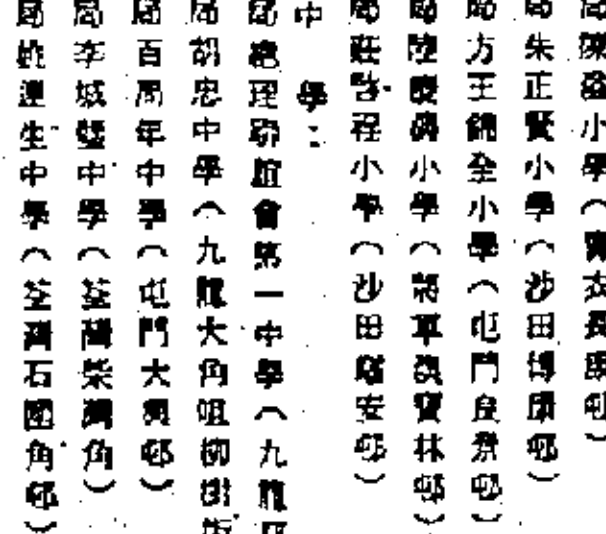 局陳㷫小學（青衣長康邨）
局朱正賢小學（沙田博康邨）
局方王錦全小學（屯門良景邨）
局陸慶濤小學（將軍澳寶林邨）
局莊啓程小學（沙田瑞安邨）
中學：
局總理聯誼會第一中學（九龍
局胡忠中學（九龍大角咀柳樹街
局百周年中學（屯門大興邨）
局李城璧中學（荃灣柴灣角）
局姚連生中學（荃灣石圍角邨）